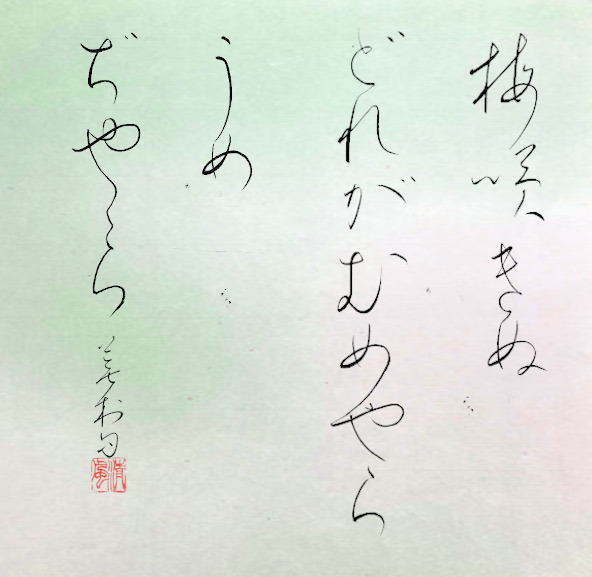 梅咲きぬ
どれがむめやら
うめ
ぢやら
蕪村句